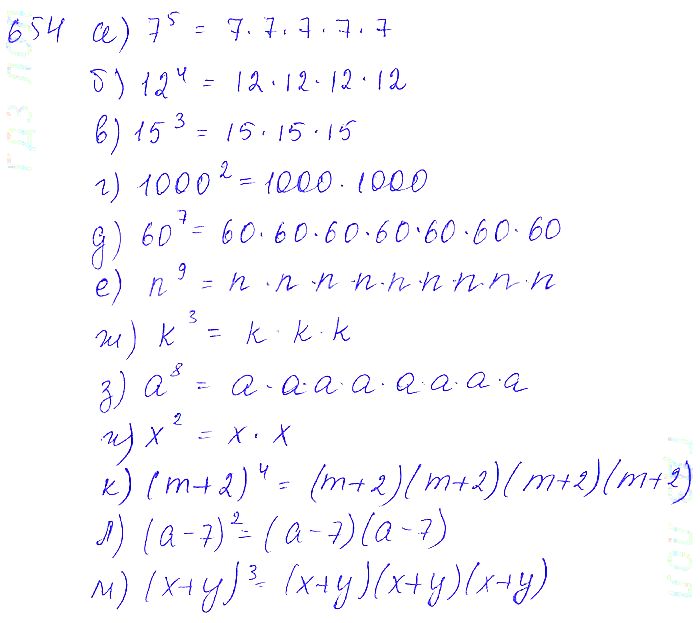 654 а) 7⁵ = 7·7·7·7·7
б) 12⁴ = 12·12·12·12
в) 15³ = 15·15·15
г) 1000² = 1000·1000
д) 60⁷ = 60·60·60·60·60·60·60
е) n⁹ = n·n·n·n·n·n·n·n·n
ж) k³ = k·k·k
з) a⁸ = a·a·a·a·a·a·a·a
и) x² = x·x
к) (m+2)⁴ = (m+2)(m+2)(m+2)(m+2)
л) (a-7)² = (a-7)(a-7)
м) (x+y)³ = (x+y)(x+y)(x+y)